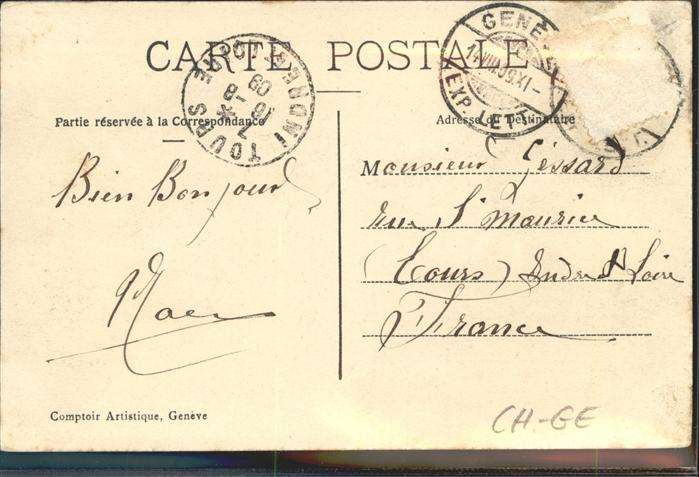 CARTE POSTALE
GENÈ
14.VIII.09.XI-
EXP. LET
TOURS
INDRE
16 -8
09
Partie réservée à la Correspondance
Adresse du Destinataire
Bien Bonjour
Monsieur Gessard
rue St Maurice
(Tours) Indre & Loire
France
Comptoir Artistique, Genève
CH-GE